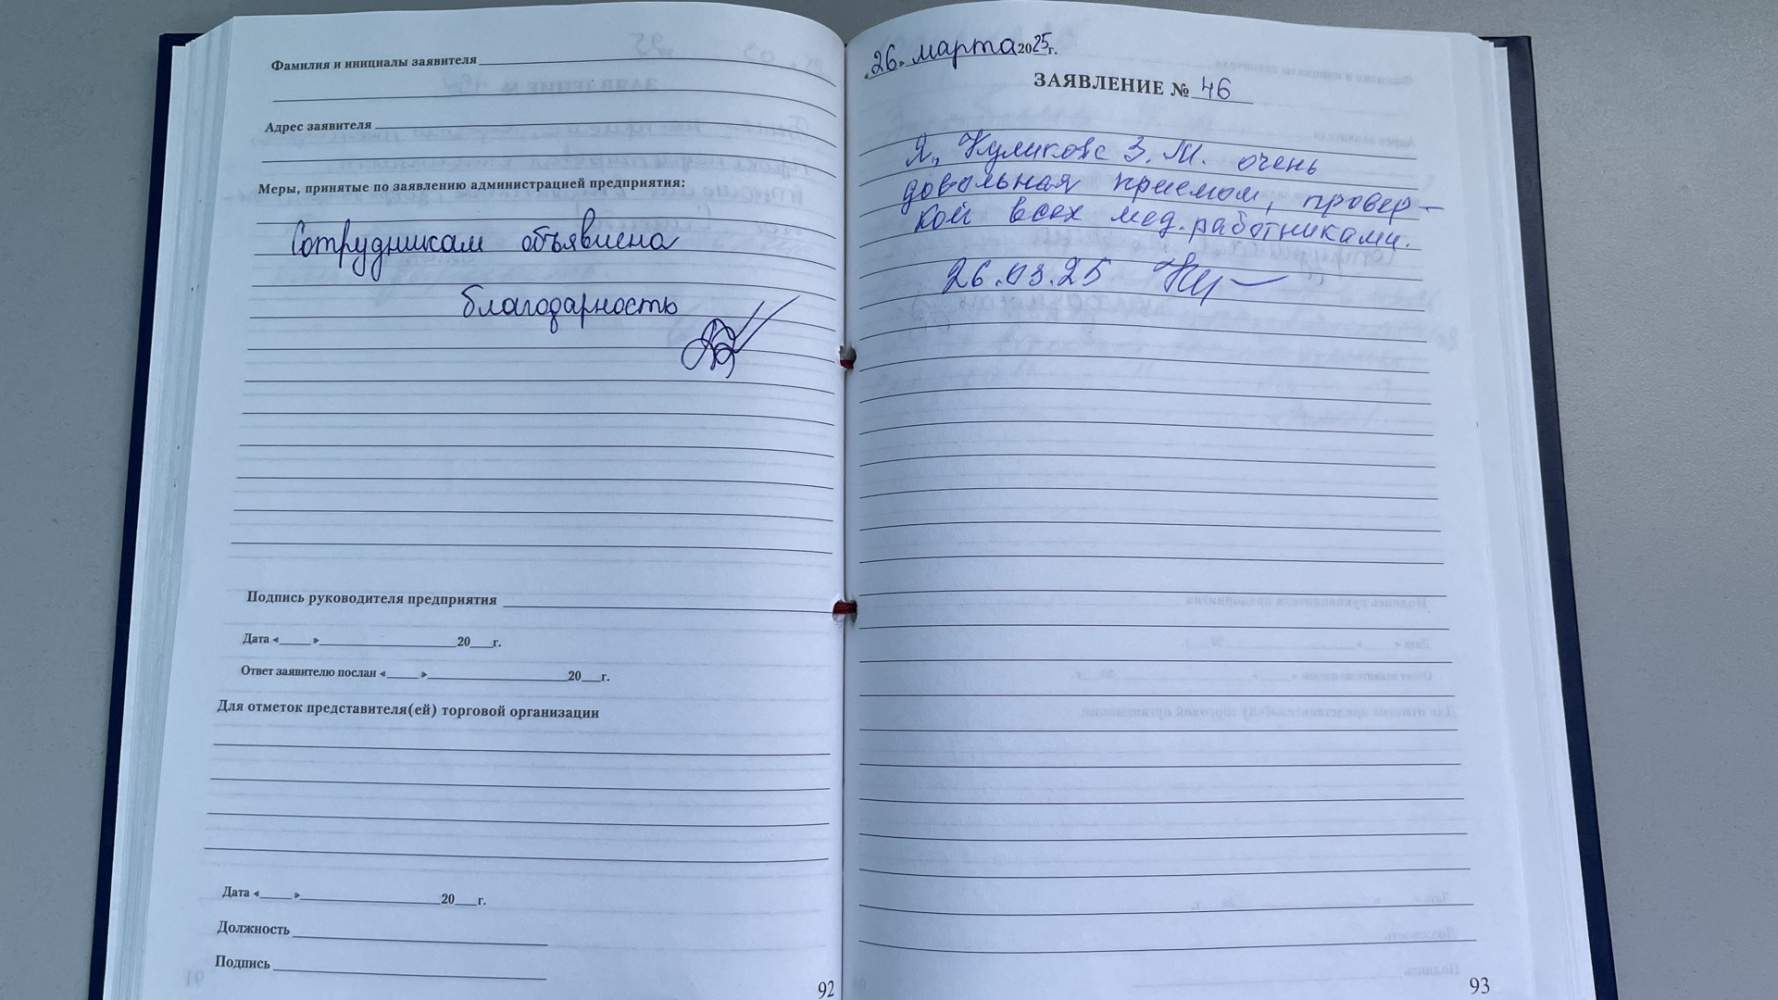 Фамилия и инициалы заявителя
Адрес заявителя
Меры, принятые по заявлению администрацией предприятия:
Сотрудникам объявлена
благодарность
Подпись руководителя предприятия
Дата «___»___20___г.
Ответ заявителю послан «___»___20___г.
Для отметок представителя(ей) торговой организации
Дата «___»___20___г.
Должность
Подпись
92
«26» марта 2025г.
ЗАЯВЛЕНИЕ № 46
Я, Куликова З. М. очень
довольная приемом, провер-
кой всех мед. работниками.
26.03.25
93